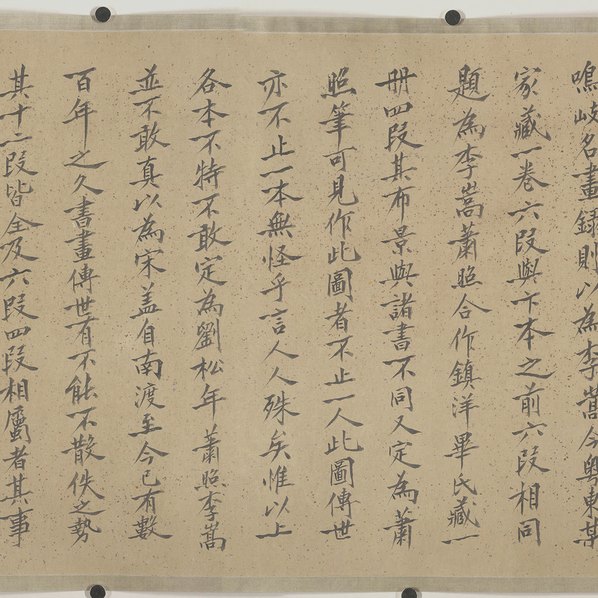 鳴岐名畫録則以為李嵩今粤東某
家藏一卷六段與卞本之前六段相同
題為李嵩蕭照合作鎮洋畢氏藏一
册四段其布景與諸書不同又定為蕭
照筆可見作此圖者不止一人此圖傳世
亦不止一本無怪乎言人人殊矣惟以上
各本不特不敢定為劉松年蕭照李嵩
並不敢真以為宋盖自南渡至今已有數
百年之久書畫傳世有不能不散佚之勢
其十二段皆全及六段四段相屬者其事